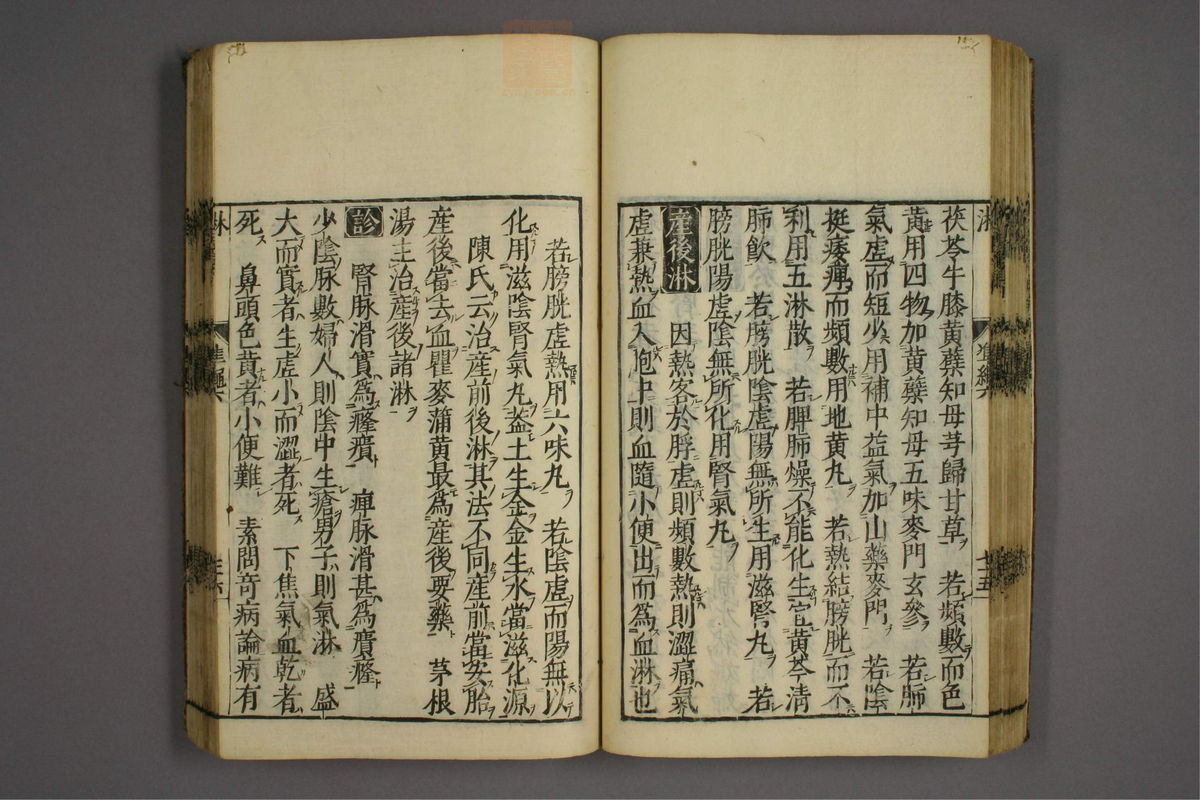 茯苓牛膝黃蘗知母芎歸甘草 若頻數而色
黃用四物加黃蘗知母五味麥門玄參 若肺
氣虛而短少用補中益氣加山藥麥門 若陰
挺痿痺而頻數用地黃丸 若熱結膀胱而不
利用五淋散 若脾肺燥不能化生宜黃芩淸
肺飮 若膀胱陰虛陽無所生用滋腎丸 若
膀胱陽虛陰無所化用腎氣丸
產後淋 因熱客於脬虛則頻數熱則澀痛氣
虛兼熱血入胞中則血隨小便出而爲血淋也
若膀胱虛熱用六味丸 若陰虛而陽無以
化用滋陰腎氣丸蓋土生金金生水當滋化源
陳氏云治產前後淋其法不同產前當安胎
產後當去血瞿麥蒲黃最爲產後要藥 茅根
湯主治產後諸淋
診 腎脉滑實爲癃㿉 痺脉滑甚爲㿉癃
少陰脉數婦人則陰中生瘡男子則氣淋 盛
大而實者生虛小而澀者死 下焦氣血乾者
死 鼻頭色黃者小便難 素問奇病論病有
淋
準繩六